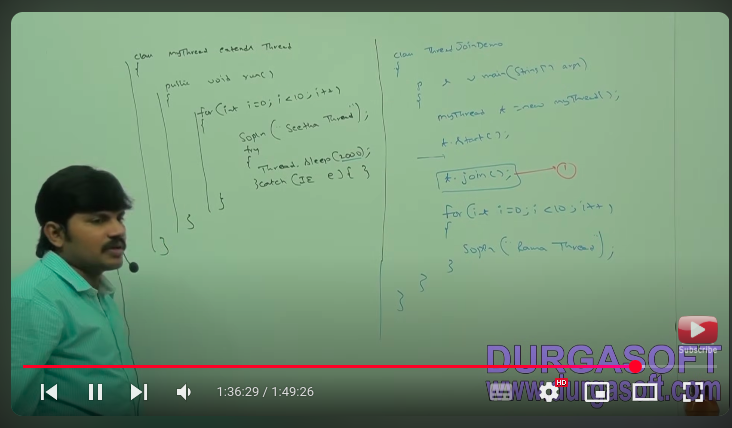 class myThread extends Thread
{
public void run()
{
for(int i=0; i<10; i++)
{
Sopln("Seetha Thread");
try
{
Thread.sleep(2000);
}catch(IE e){ }
}
}
}
class ThreadJoinDemo
{
p s v main(String[] args)
{
myThread t = new myThread();
t.start();
t.join(); → 1
for(int i=0; i<10; i++)
{
Sopln("Rama Thread");
}
}
}
Subscribe
DURGASOFT
www.durgasoft.com
1:36:29 / 1:49:26
HD